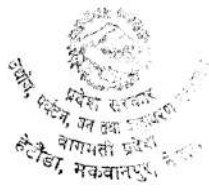 प्रदेश सरकार
उद्योग, पर्यटन, वन तथा वातावरण
बागमती प्रदेश
हेटौंडा, मकवानपुर,